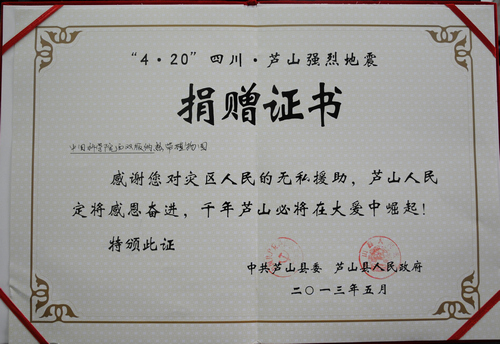 “4·20”四川·芦山强烈地震
捐赠证书
中国科学院西双版纳热带植物园
感谢您对灾区人民的无私援助，芦山人民
定将感恩奋进，千年芦山必将在大爱中崛起！
特颁此证
中共芦山县委 芦山县人民政府
二〇一三年五月